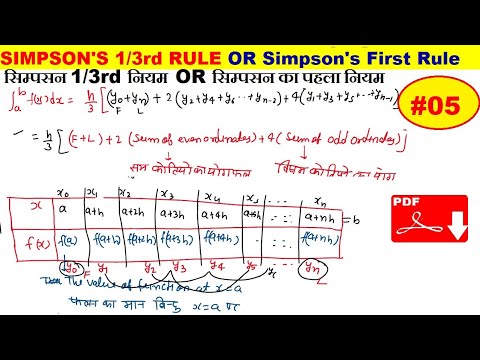 SIMPSON'S 1/3rd RULE OR Simpson's First Rule
सिम्पसन 1/3rd नियम OR सिम्पसन का पहला नियम
∫ₐᵇ f(x)dx = h/3 [(y₀+yₙ) + 2(y₂+y₄+y₆...+yₙ₋₂) + 4(y₁+y₃+y₅+...+yₙ₋₁)]
F L
#05
= h/3 [(F+L) + 2(sum of even ordinates) + 4(sum of odd ordinates)]
सम कोटियो का योगफल विषम कोटियो का योग
x₀ x₁ x₂ x₃ x₄ x₅ ... xₙ
x a a+h a+2h a+3h a+4h a+5h ... a+nh = b
f(x) f(a) f(a+h) f(a+2h) f(a+3h) f(a+4h) ... f(a+nh)
y₀ F y₁ y₂ y₃ y₄ y₅ yₙ L
The value of function at x=a
फलन का मान बिन्दु x=a पर
PDF